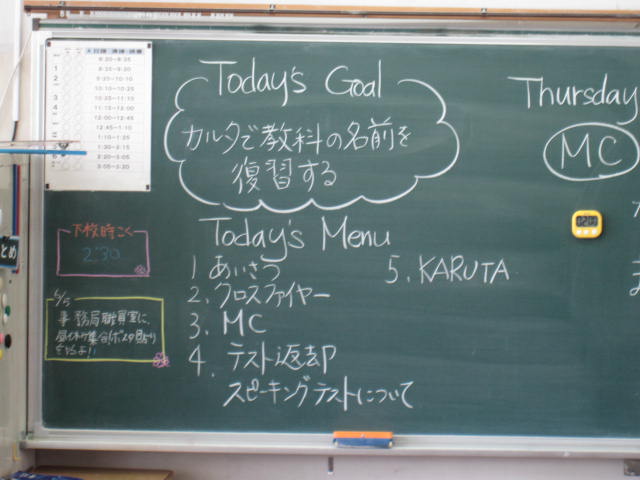 Today's Goal
カルタで教科の名前を
復習する
Thursday
MC
Today's Menu
1 あいさつ
2. クロスファイヤー
3. MC
4. テスト返却
スピーキングテストについて
5. KARUTA
下校時こく
2:30
事務局職員室に、
8:20~8:25
8:35~9:20
9:25~10:10
10:25~11:10
11:15~12:00
12:00~12:45
12:45~1:10
1:10~1:25
1:30~2:15
2:20~3:05
3:05~3:20
とめ